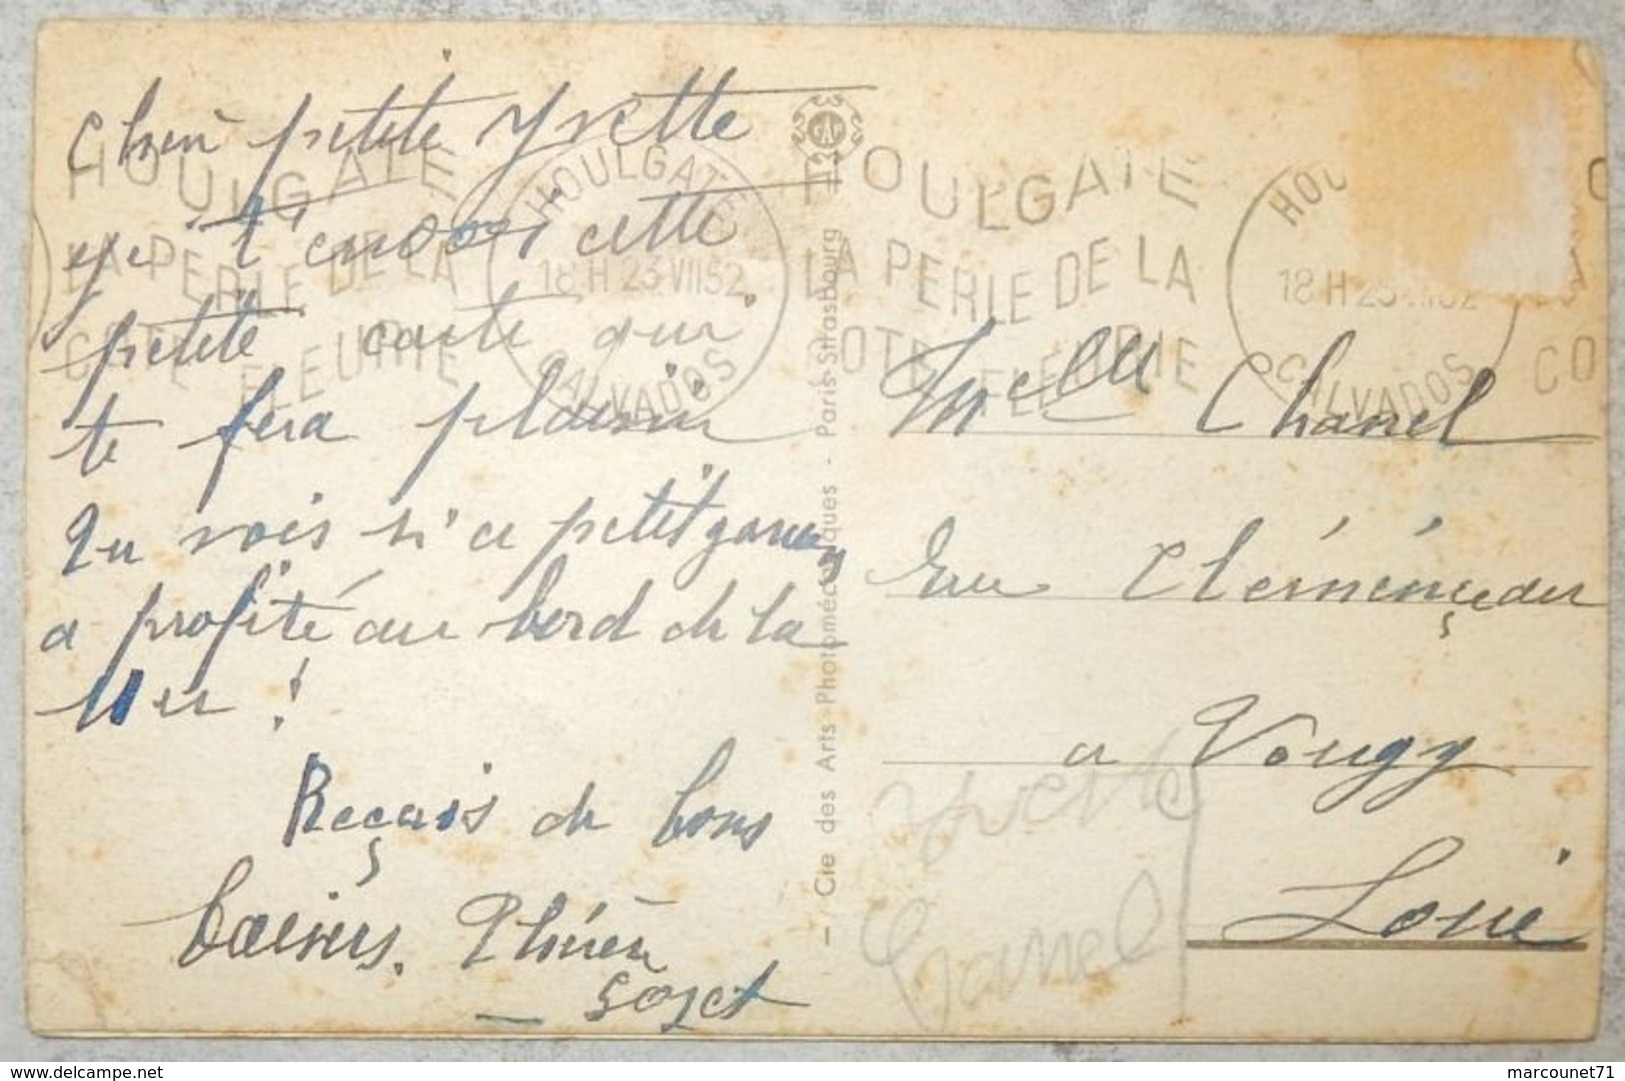 Chère petite Yvette
je t'envooi cette
petite carte qui
te fera plaisir
Tu vois si ce petit garcon
a profité au bord de la
Mer !
Reçois de bons
baisers. Thérèse
Goget
HOULGATE
LA PERLE DE LA
COTE FLEURIE
HOULGATE
18 H 23 VII 52
CALVADOS
HOULGATE
LA PERLE DE LA
COTE FLEURIE
HOU
18 H 23 VII 52
CALVADOS
CO
– Cie des Arts Photomécaniques - Paris-Strasbourg
Melle Chanel
Rue Clémençeau
a Vougy
Loire
Yvette
Chanel
www.delcampe.net
marcounet71